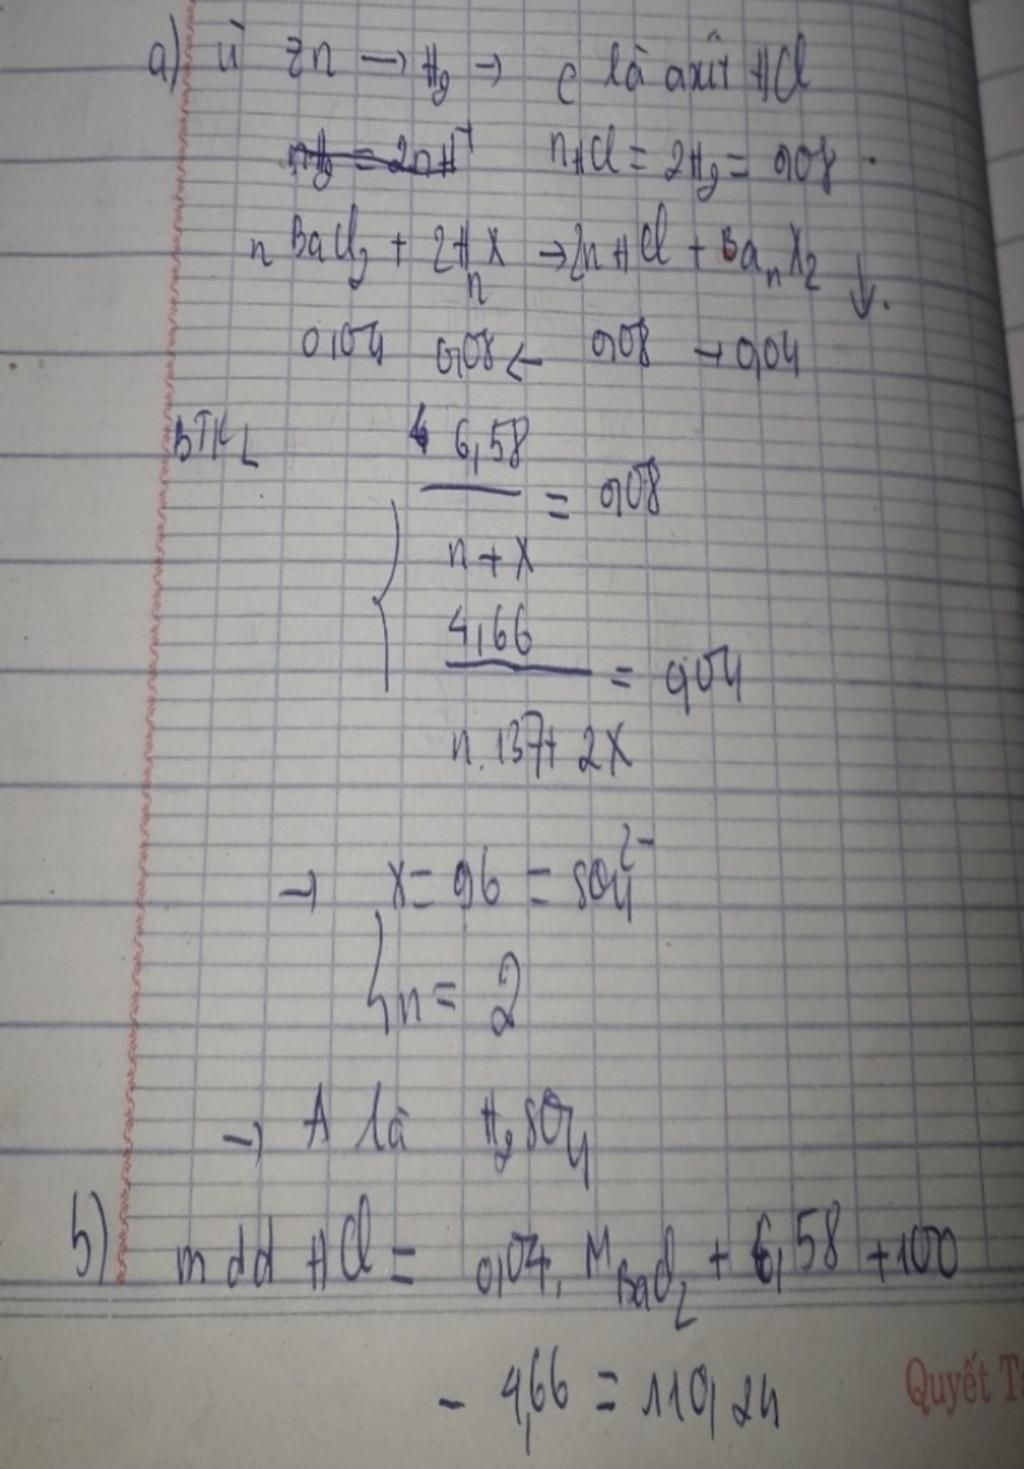 a) ủ Zn → H₂ → C là axit HCl
nH₂ = 2nH⁺ nHCl = 2H₂ = 0,08.
n BaCl₂ + 2HₙX → 2n HCl + BaₙX₂ ↓.
0,04 0,08 ← 0,08 → 0,04
BTKL 6,58
= 0,08
n + X
4,66
= 0,04
n.137 + 2X
→ X = 96 = SO₄²⁻
n = 2
→ A là H₂SO₄
b) m dd HCl = 0,04. M BaCl₂ + 6,58 + 100
- 4,66 = 110,24
Quyết T